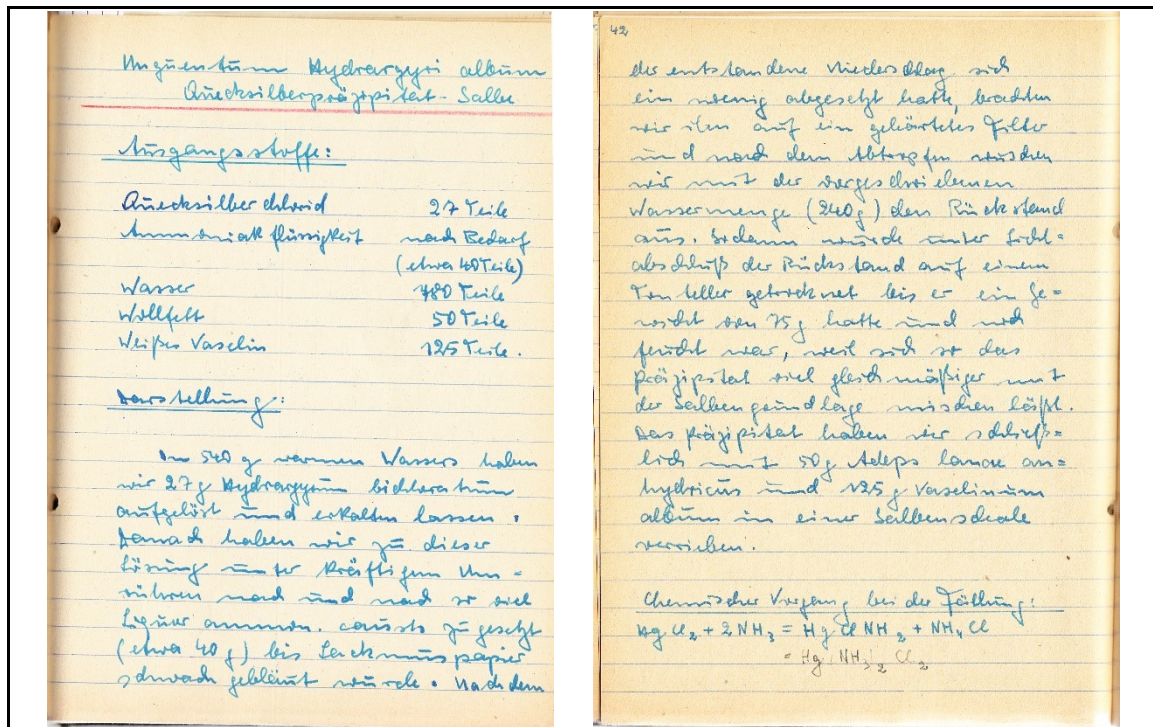 Unguentum Hydrargyri album
Quecksilberpräzipitat-Salbe
Ausgangsstoffe:
Quecksilberchlorid 27 Teile
Ammoniakflüssigkeit nach Bedarf
(etwa 40 Teile)
Wasser 780 Teile
Wollfett 50 Teile
Weißes Vaselin 125 Teile.
Darstellung:
In 540 g warmen Wassers haben
wir 27 g Hydrargyrum bichloratum
aufgelöst und erkalten lassen.
Danach haben wir zu dieser
Lösung unter kräftigem Um=
rühren nach und nach so viel
Liquor ammon. caust. zugesetzt
(etwa 40 g) bis Lackmuspapier
schwach gebläut wurde. Nachdem
42
der entstandene Niederschlag sich
ein wenig abgesetzt hatte, brachten
wir ihn auf ein gehärtetes Filter
und nach dem Abtropfen wuschen
wir mit der vorgeschriebenen
Wassermenge (240 g) den Rückstand
aus. Sodann wurde unter Licht=
abschluß der Rückstand auf einem
Tonteller getrocknet bis er ein Ge=
wicht von 75 g hatte und noch
feucht war, weil sich so das
Präzipitat viel gleichmäßiger mit
der Salbengrundlage mischen läßt.
Das Präzipitat haben wir schließ=
lich mit 50 g Adeps lanae an=
hydricus und 125 g Vaselinum
album in einer Salbenschale
verrieben.
Chemischer Vorgang bei der Fällung:
Hg Cl₂ + 2 NH₃ = Hg Cl NH₂ + NH₄ Cl
= Hg (NH₃)₂ Cl₂